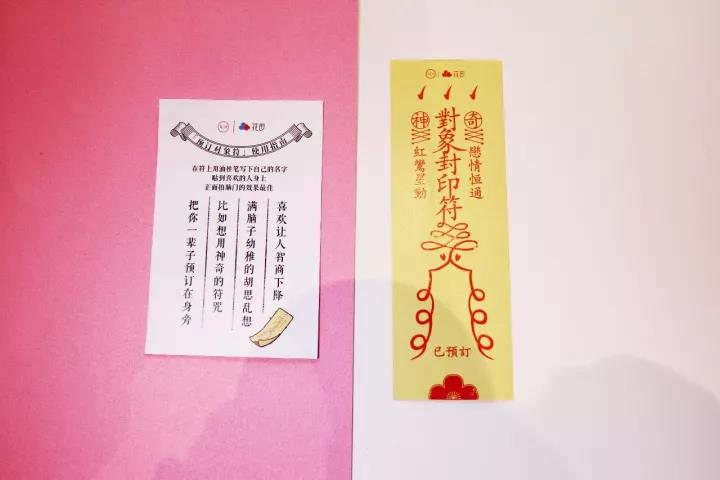 花田
「预订对象符」使用指南
在符上用油性笔写下自己的名字
贴到喜欢的人身上
正面拍脑门的效果最佳
喜欢让人智商下降
满脑子幼稚的胡思乱想
比如想用神奇的符咒
把你一辈子预订在身旁
花田
奇
戀情恒通
對象封印符
神
紅鸞星動
已預訂